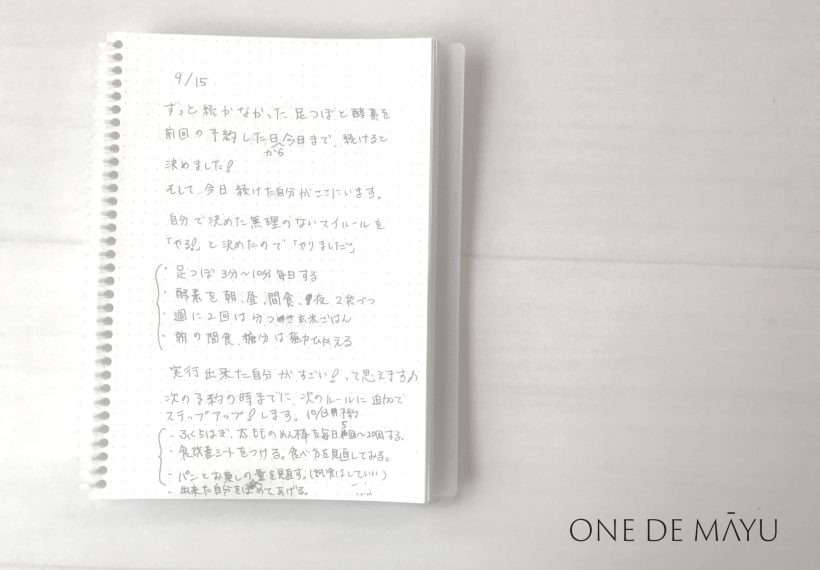 9/15
ずっと続かなかった足つぼと酵素を
前回の予約した日から今日まで、続けると
決めました!
そして、今日続けた自分がここにいます。
自分で決めた無理のないマイルールを
「やる!」と決めたので「やりました」
・足つぼ 3分〜10分 毎日する
・酵素を朝、昼、間食、夜 2袋づつ
・週に2回は分つき玄米ごはん
・朝の間食、糖分は極力ひかえる
実行出来た自分がすごい!って思えます♪
次の予約の時までに、次のルールに追加で
ステップアップ!します。予約
・ふくらはぎ、太ももめん棒を毎日〜20回する。
・食改善シートをつける。食べ方を見直してみる。
・パンとお菓しの量を見直す。
・出来た自分をほめてあげる。
ONE DE MĀYU